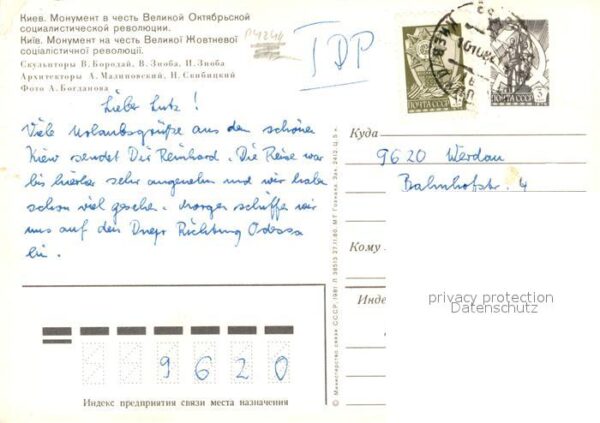 Киев. Монумент в честь Великой Октябрьской
социалистической революции.
Київ. Монумент на честь Великої Жовтневої
соціалістичної революції.
Скульпторы В. Бородай, В. Зноба, И. Зноба
Архитекторы А. Малиновский, Н. Скибицкий
Фото А. Богданова
TDP
ПОЧТА СССР
ПОЧТА СССР
Lieber Lutz!
Viele Urlaubsgrüße aus dem schönen
Kiew sendet Dir Reinhard. Die Reise war
bis hierher sehr angenehm und wir haben
schon viel gesehen. Morgen schiffen wir
uns auf den Dnepr Richtung Odessa
ein.
Куда
9620 Werdau
Bahnhofstr. 4
Кому
Инде
privacy protection
Datenschutz
9620
Индекс предприятия связи места назначения
© Министерство связи СССР, 1981